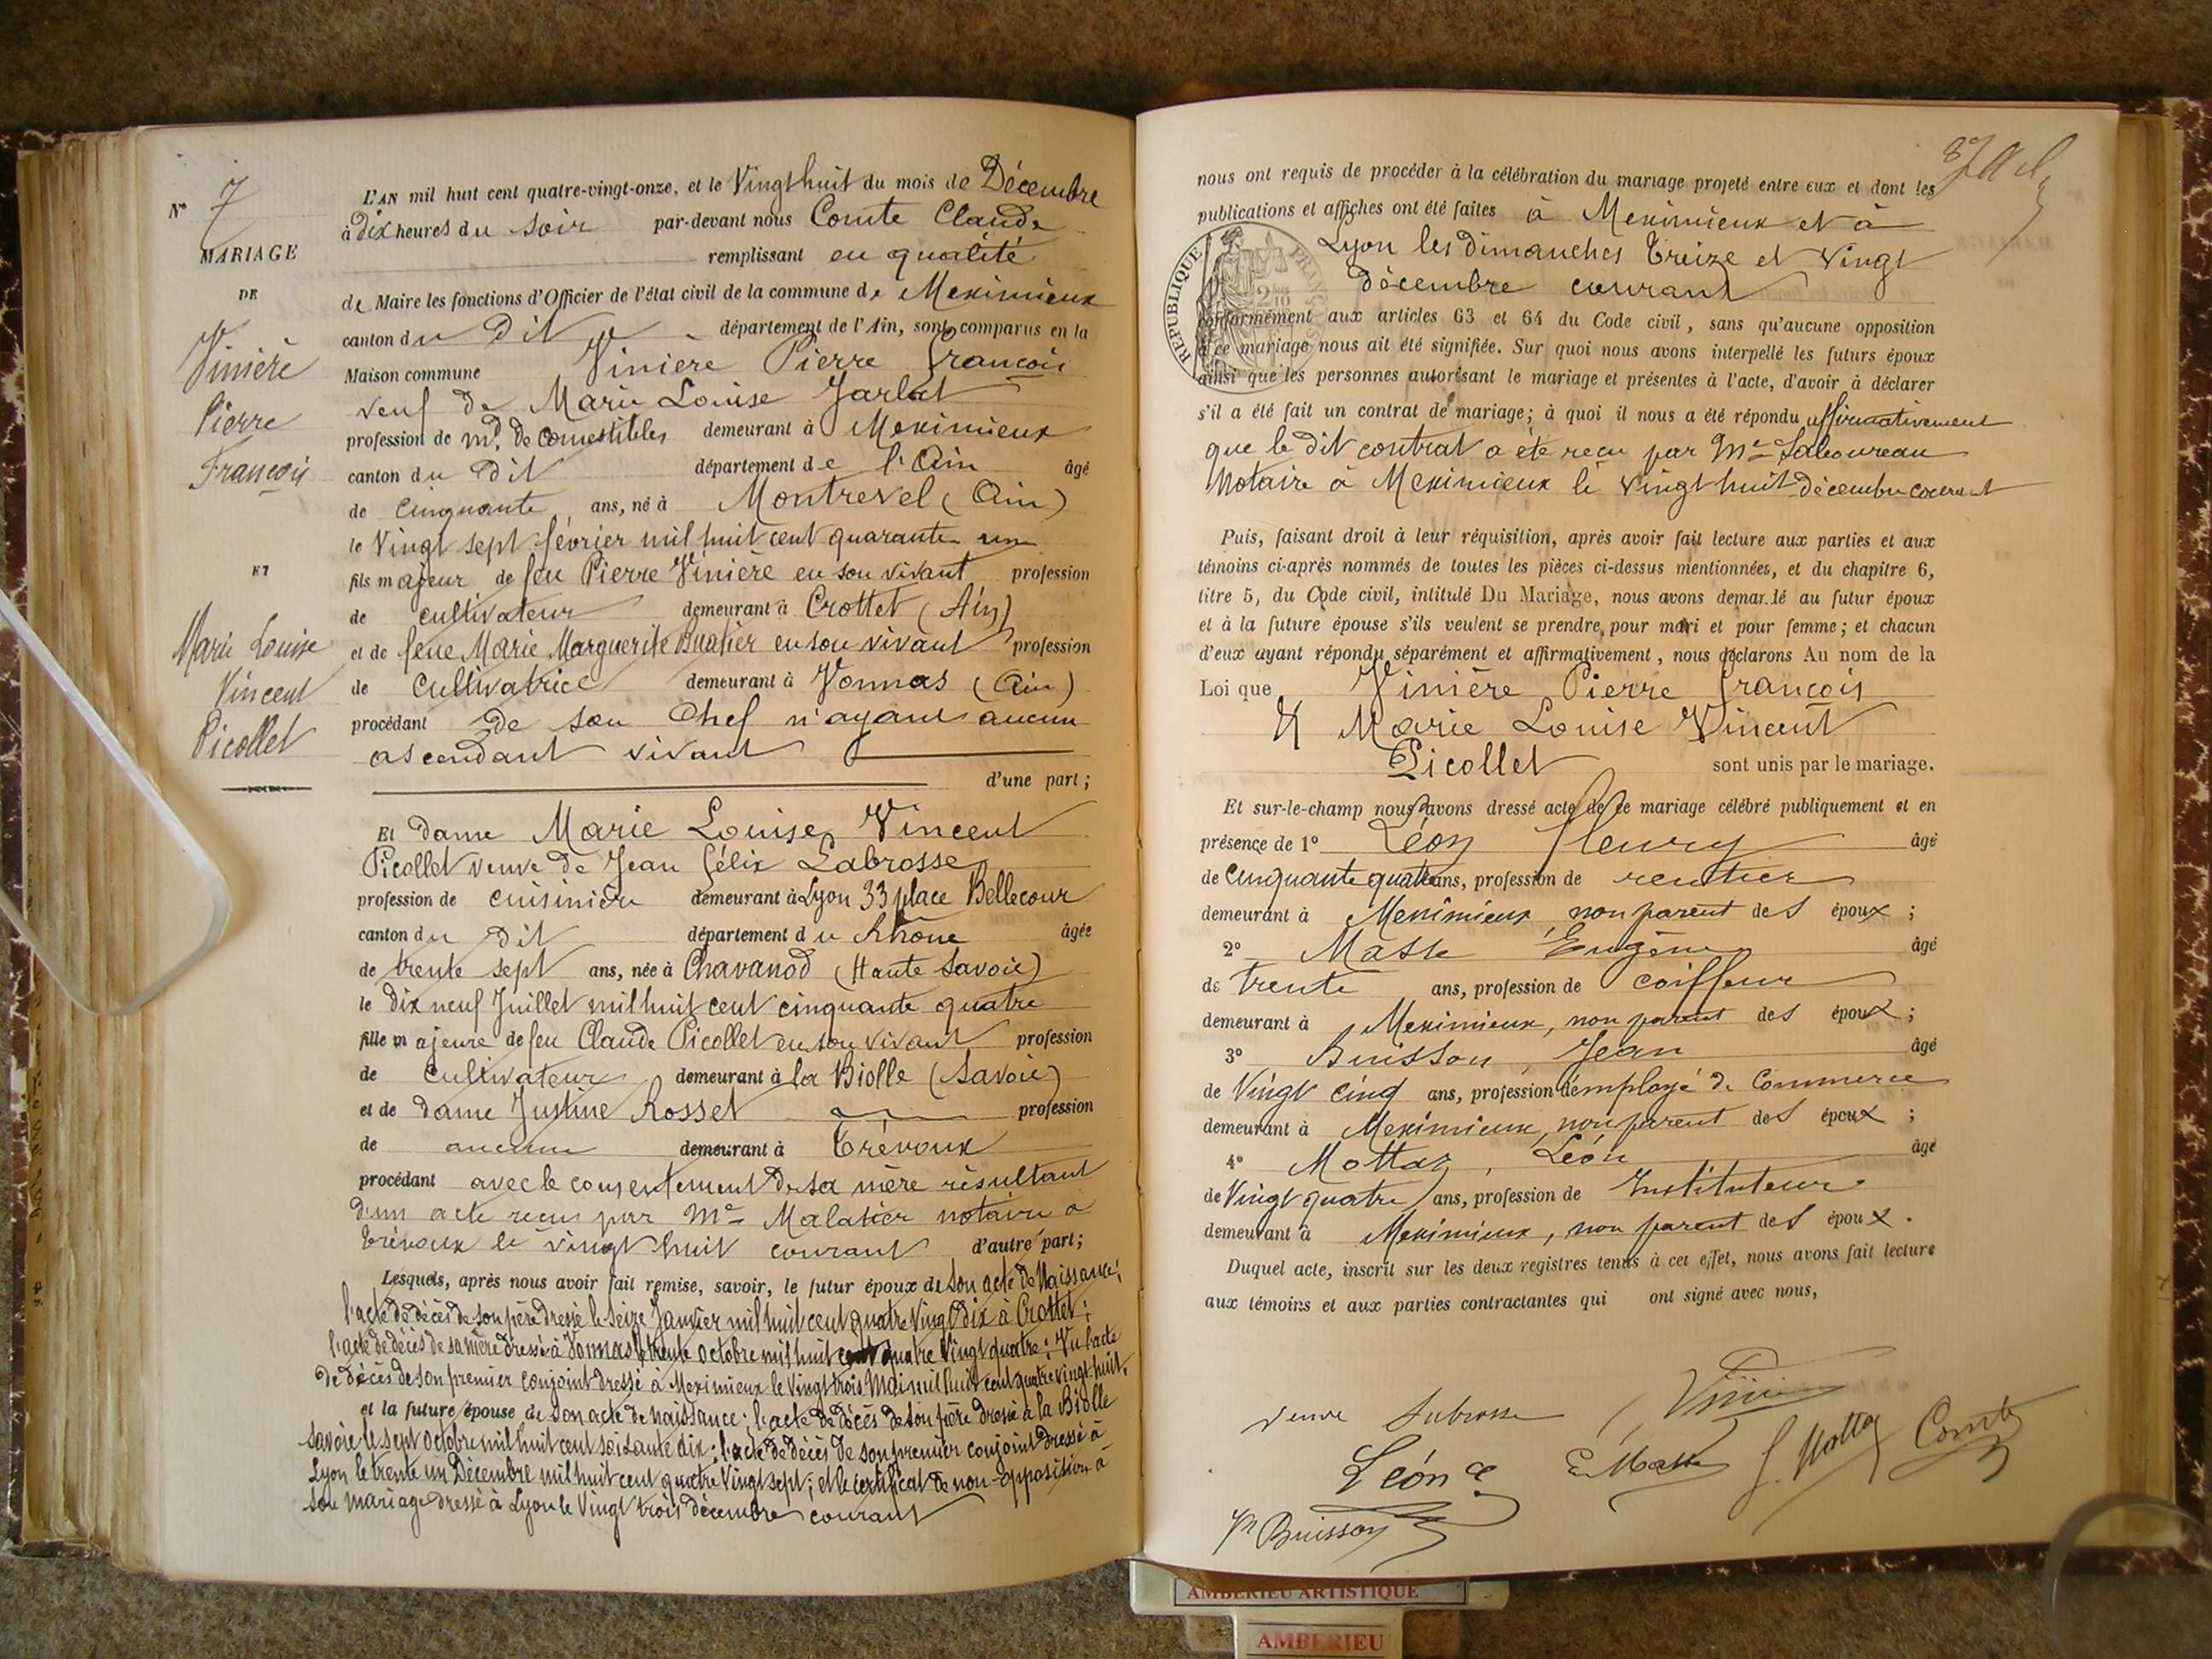 N° 7
MARIAGE
DE
Vinière
Pierre
François
ET
Marie Louise
Vincent
Picollet
L'AN mil huit cent quatre-vingt-onze, et le Vingt huit du mois de Décembre
à dix heures du soir par-devant nous Comte Claude
remplissant en qualité
de Maire les fonctions d'Officier de l'état civil de la commune de Meximieux
canton du Dit département de l'Ain, sont comparus en la
Maison commune Viniere Pierre François
veuf de Marie Louise Jarlet
profession de md. de comestibles demeurant à Meximieux
canton du Dit département de l'Ain âgé
de Cinquante ans, né à Montrevel (Ain)
le Vingt sept février mil huit cent quarante un
fils majeur de feu Pierre Vinière en son vivant profession
de cultivateur demeurant à Crottet (Ain)
et de feue Marie Marguerite Buatier en son vivant profession
de Cultivatrice demeurant à Vonnas (Ain)
procédant De son Chef n'ayant aucun
ascendant vivant
d'une part;
Et Dame Marie Louise Vincent
Picollet veuve de Jean félix Labrosse
profession de cuisinière demeurant à Lyon 33 place Bellecour
canton du Dit département du Rhône âgée
de trente sept ans, née à Chavanod (Haute Savoie)
le Dix neuf Juillet mil huit cent cinquante quatre
fille majeure de feu Claude Picollet en son vivant profession
de Cultivateur demeurant à la Biolle (Savoie)
et de Dame Justine Rosset profession
de aucune demeurant à Trévoux
procédant avec le consentement De sa mère résultant
d'un acte reçu par Me Malatier notaire à
Trévoux le vingt huit courant d'autre part;
Lesquels, après nous avoir fait remise, savoir, le futur époux de son acte de Naissance;
l'acte de décès de son père dressé le Seize Janvier mil huit cent quatre Vingt Dix à Crottet;
l'acte de décès de sa mère dressé à Vonnas le trente octobre mil huit cent quatre Vingt quatre; Vu l'acte
De décès de son premier conjoint dressé à Meximieux le Vingt trois Mai mil huit cent quatre vingt huit.
et la future épouse de son acte de naissance; l'acte de décès de son père dressé à la Biolle
Savoie le sept octobre mil huit cent soixante dix; l'acte de décès de son premier conjoint dressé à
Lyon le trente un Décembre mil huit cent quatre Vingt sept; et le certificat de non-opposition à
son mariage dressé à Lyon le Vingt trois décembre courant
nous ont requis de procéder à la célébration du mariage projeté entre eux et dont les
publications et affiches ont été faites à Meximieux et à
Lyon les dimanches Treize et Vingt
décembre courant
conformément aux articles 63 et 64 du Code civil, sans qu'aucune opposition
à ce mariage nous ait été signifiée. Sur quoi nous avons interpellé les futurs époux
ainsi que les personnes autorisant le mariage et présentes à l'acte, d'avoir à déclarer
s'il a été fait un contrat de mariage; à quoi il nous a été répondu affirmativement
que le dit contrat a été reçu par Me Laboureau
Notaire à Meximieux le Vingt huit décembre courant
Puis, faisant droit à leur réquisition, après avoir fait lecture aux parties et aux
témoins ci-après nommés de toutes les pièces ci-dessus mentionnées, et du chapitre 6,
titre 5, du Code civil, intitulé Du Mariage, nous avons demandé au futur époux
et à la future épouse s'ils veulent se prendre pour mari et pour femme; et chacun
d'eux ayant répondu séparément et affirmativement, nous déclarons Au nom de la
Loi que Vinière Pierre François
Et Marie Louise Vincent
Picollet sont unis par le mariage.
Et sur-le-champ nous avons dressé acte de ce mariage célébré publiquement et en
présence de 1° Léon fleury âgé
de Cinquante quatre ans, profession de rentier
demeurant à Meximieux non parent des époux;
2° Masse Eugène âgé
de trente ans, profession de coiffeur
demeurant à Meximieux, non parent des époux;
3° Buisson, Jean âgé
de Vingt cinq ans, profession d'employé de Commerce
demeurant à Meximieux, non parent des époux;
4° Mottaz, Léon âgé
de Vingt quatre ans, profession de Instituteur
demeurant à Meximieux, non parent des époux.
Duquel acte, inscrit sur les deux registres tenus à cet effet, nous avons fait lecture
aux témoins et aux parties contractantes qui ont signé avec nous,
veuve Labrosse
Léon
E. Masse
Comte
Buisson
REPUBLIQUE FRANÇAISE
AMBERIEU ARTISTIQUE
AMBERIEU